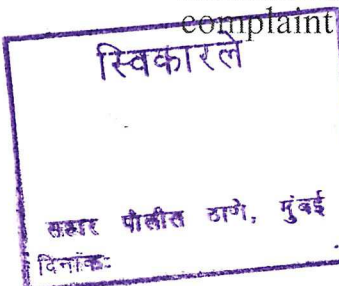 complaint
स्विकारले
सहार पोलीस ठाणे, मुंबई
दिनांक: